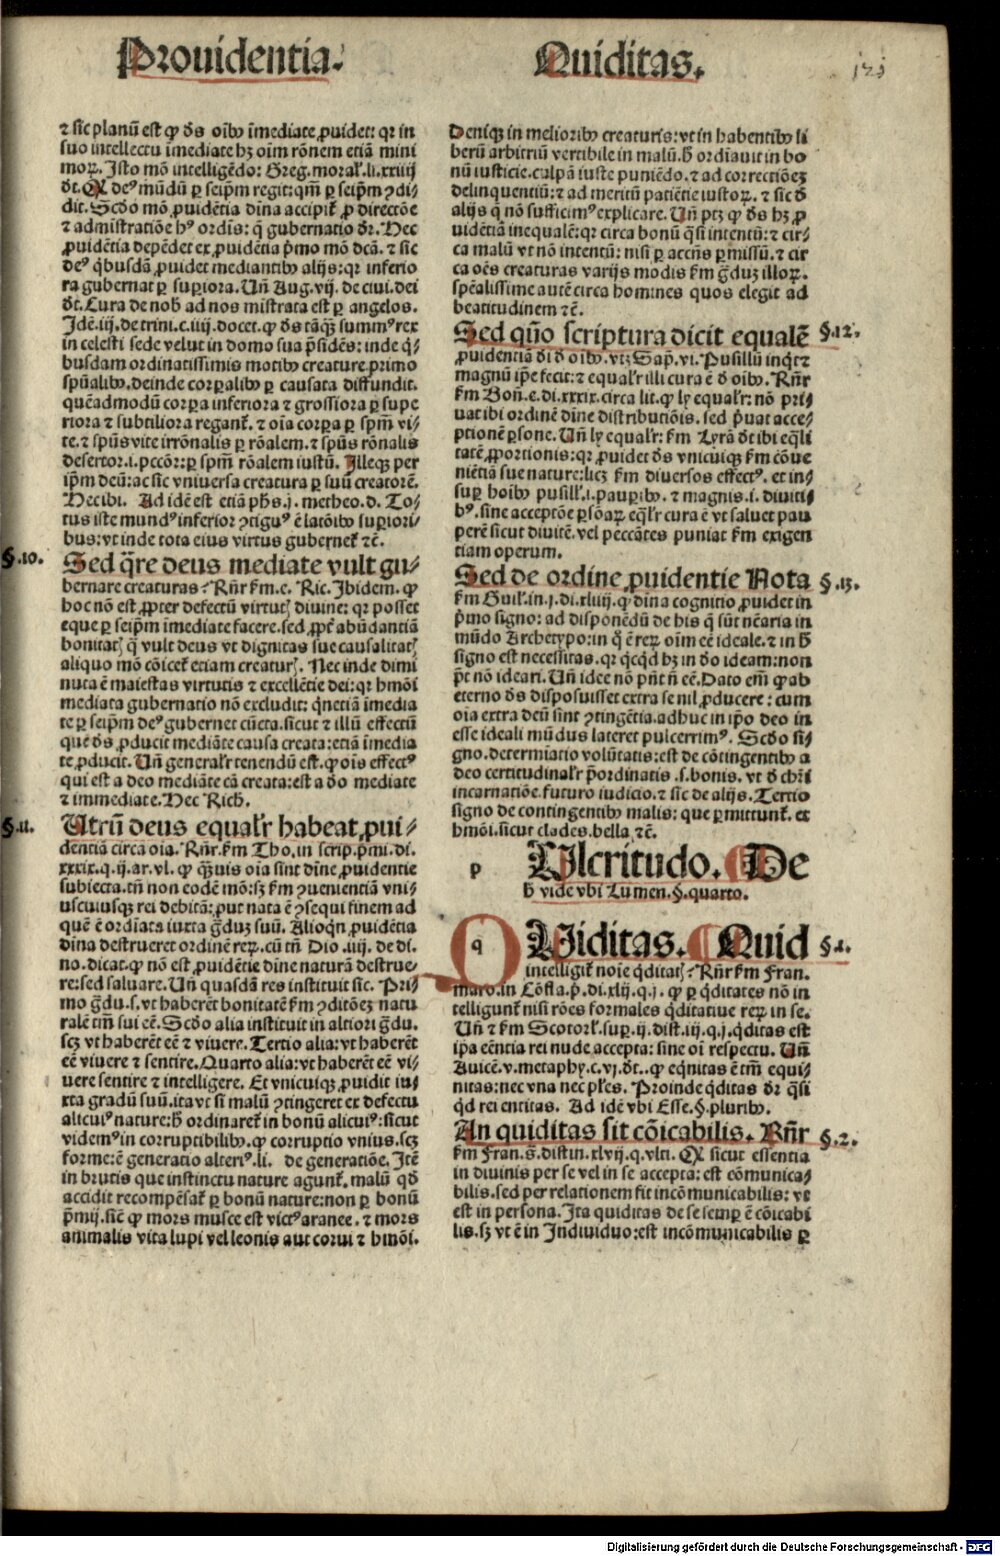 Prouidentia.
Quiditas.
123
⁊ sic planū est ꝙ ds̄ oīb⁹ īmediate ꝓuidet: qr in
suo intellectu īmediate hꝫ oīm rōnem etiā mini
moꝝ. Isto mō intelligēdo: Greg. moral̓. li. xxiiij
dt. Q̨ de⁹ mūdū ꝑ seip̄m regit: qm̄ ꝑ seip̄m ꝯdi⸗
dit. Scd̄o mō ꝓuidētia diīna accipit̄ ꝓ directōe
⁊ admistratiōe h⁹ ordis: q̄ gubernatio dr̄. Hec
ꝓuidētia depēdet ex ꝓuidētia p̄mo mō dcā. ⁊ sic
de⁹ q̇busdā ꝓuidet mediantib⁹ alijs: qr inferio
ra gubernat ꝑ suꝑiora. Vn̄ Aug. vij. de ciui. dei
dt. Cura de nob̄ ad nos mīstrata est ꝑ angelos.
Idē. iij. de trini. c. iiij. docet. ꝙ ds̄ tāq̄ꝫ summ⁹ rex
in celesti sede velut in domo sua p̄sidēs: inde q̇⸗
busdam ordinatissimis motib⁹ creature. primo
spūalib⁹. deinde corꝑalib⁹ ꝑ causata diffundit.
quēadmodū corꝑa inferiora ⁊ grossiora ꝑ supe
riora ⁊ subtiliora regant̄. ⁊ oīa corꝑa ꝑ spm̄ vi⸗
te. ⁊ spūs vite irrōnalis ꝑ rōalem. ⁊ spūs rōnalis
desertor. i. pctōr: ꝑ spm̄ rōalem iustū. Illeqꝫ per
ip̄m deū: ac sic vniuersa creatura ꝑ suū creatorē.
Hec ibi. Ad idē est etiā phs̄. j. metheo. d. To⸗
tus iste mund⁹ inferior ꝯtigu⁹ ē latōib⁹ suꝑiori⸗
bus: vt inde tota eius virtus gubernet̄ ⁊c̄.
§. 10.
Sed q̄re deus mediate vult gu⸗
bernare creaturas? Rn̄r ẜm. e. Ric. Ibidem. ꝙ
hoc nō est ꝓpter defectū virtutꝭ diuine: qr posset
eque ꝑ seip̄m īmediate facere. sed ꝓpt̄ abūdantiā
bonitatꝭ q̄ vult deus vt dignitas sue causalitatꝭ
aliquo mō cōicet̄ etiam creaturꝭ. Nec inde dimi
nuta ē maiestas virtutis ⁊ excellētie dei: qr hmōi
mediata gubernatio nō excludit: q̇netiā īmedia
te ꝑ seip̄m de⁹ gubernet cūcta. sicut ⁊ illū effectū
quē ds̄ ꝓducit mediāte causa creata: etiā īmedia
te ꝓducit. Vn̄ general̓r tenendū est. ꝙ oīs effect⁹
qui est a deo mediāte cā creata: est a do mediate
⁊ immediate. Hec Rich.
§. 11.
Utrū deus equal̓r habeat ꝓui⸗
dentiā circa oīa. Rn̄r. ẜm Tho. in scrip. p̄mi. di.
xxxix. q. ij. ar. vl. ꝙ q̄ꝫuis oīa sint dīne ꝓuidentie
subiecta. tn̄ non eodē mō: sꝫ ẜm ꝯuenientiā vni⸗
uscuiusqꝫ rei debitā: ꝓut nata ē ꝯsequi finem ad
quē ē ordīata iuxta gradꝫ suū. Alioqn̄ ꝓuidētia
dīna destrueret ordinē reꝝ. cū tn̄ Dio. iiij. de di.
no. dicat. ꝙ nō est ꝓuidētie dīne naturā destrue⸗
re: sed saluare. Vn̄ quasdā res instituit sic. Pri⸗
mo gradu. s. vt haberēt bonitatē ẜm ꝯditōeꝫ natu
ralē tm̄ sui eē. Scd̄o alia instituit in altiori gradu.
scꝫ vt haberēt eē ⁊ viuere. Tertio alia: vt haberēt
eē viuere ⁊ sentire. Quarto alia: vt haberēt eē vi⸗
uere sentire ⁊ intelligere. Et vnicuiqꝫ ꝓuidit iu⸗
xta gradū suū. ita vt si malū ꝯtingeret ex defectu
alicui⁹ nature: h̄ ordinaret̄ in bonū alicui⁹: sicut
videm⁹ in corruptibilib⁹. ꝙ corruptio vnius. scꝫ
forme: ē generatio alteri⁹. li. de generatiōe. Itē
in brutis que instinctu nature agunt̄. malū qd̄
accidit recompēsat̄ ꝑ bonū nature: non ꝑ bonū
p̄mij. sic̄ ꝙ mors musce est vict⁹ aranee. ⁊ mors
animalis vita lupi vel leonis aut corui ⁊ hmōi.
Deniqꝫ in meliorib⁹ creaturis: vt in habentib⁹ li
berū arbitriū vertibile in malū. h̄ ordīauit in bo
nū iusticie. culpā iuste puniēdo. ⁊ ad correctiōeꝫ
delinquentiū: ⁊ ad meritū patiētie iustoꝝ. ⁊ sic d̄
alijs q̄ nō sufficim⁹ explicare. Vn̄ ptꝫ ꝙ ds̄ hꝫ ꝓ
uidētiā inequalē: qr circa bonū q̄si intentū: ⁊ cir⸗
ca malū vt nō intentū: nisi ꝑ accn̄s ꝑmissū. ⁊ cir
ca oēs creaturas varijs modis ẜm gradꝫ illoꝝ.
spēalissime autē circa homines quos elegit ad
beatitudinem ⁊c̄.
Sed quō scriptura dicit equalē
§. 12.
ꝓuidentiā di d̄ oīb⁹. vtꝫ Sap. vi. Pusillū inq̇t ⁊
magnū ip̄e fecit: ⁊ equal̓r illi cura ē d̄ oīb⁹. Rn̄r
ẜm Bon. e. di. xxxix. circa lit. ꝙ ly equal̓r: nō pri⸗
uat ibi ordinē dīne distributiōis. sed p̄uat acce⸗
ptionē ꝑsone. Vn̄ ly equal̓r: ẜm Lyrā dt ibi eq̄li
tatē ꝓportionis: qr ꝓuidet ds̄ vnicuiqꝫ ẜm cōue
niētiā sue nature: licꝫ ẜm diuersos effect⁹. et in⸗
suꝑ hoīb⁹ pusill̓. i. pauꝑib⁹. ⁊ magnis. i. diuiti⸗
b⁹. sine acceptōe ꝑsōaꝝ eq̄l̓r cura ē vt saluet pau
perē sicut diuitē. vel peccātes puniat ẜm exigen
tiam operum.
Sed de ordine ꝓuidentie Nota
§. 13.
ẜm Guil̓. in. j. di. xliij. ꝙ dīna cognitio ꝓuidet in
p̄mo signo: ad disponēdū de his q̄ sūt nc̄aria in
mūdo Archetypo: in q̄ ē reꝝ oīm eē ideale. ⁊ in h̄
signo est necessitas. qr q̇cq̇d hꝫ in do ideam: non
pt̄ nō ideari. Vn̄ idee nō pn̄t n̄ eē. Dato em̄ ꝙ ab
eterno ds̄ disposuisset extra se nil ꝓducere: cum
oīa extra deū sint ꝯtingētia. adhuc in ip̄o deo in
esse ideali mūdus lateret pulcerrim⁹. Scd̄o si⸗
gno. determīatio volūtatis: est de cōtingentib⁹ a
deo certitudinal̓r p̄ordinatis. s. bonis. vt d̄ chr̄i
incarnatiōe. futuro iudicio. ⁊ sic de alijs. Tertio
signo de contingentib⁹ malis: que ꝑmittunt̄. et
hmōi. sicut clades. bella. ⁊c̄.
p
Ulcritudo. De
h̄ vide vbi Lumen. §. quarto.
q
Uiditas. Quid
§. 1.
intelligit̄ noīe q̇ditatꝭ? Rn̄r ẜm Fran.
maro. in Cōfla. p̄. di. xlij. q. j. ꝙ ꝑ q̇ditates nō in
telligunt̄ nisi rōes formales q̇ditatiue reꝝ in se.
Vn̄ ⁊ ẜm Scotor̄. suꝑ. ij. dist. iij. q. j. q̇ditas est
ip̄a eēntia rei nude accepta: sine oī respectu. Vn̄
Auicē. v. metaphy. c. vj. dt. ꝙ eq̇nitas ē tm̄ equi⸗
nitas: nec vna nec pl̓es. Proinde q̇ditas dr̄ q̄si
q̇d rei entitas. Ad idē vbi Esse. §. plurib⁹.
An quiditas sit cōicabilis. Rn̄r
§. 2.
ẜm Fran. s̄. distin. xlvij. q. vlti. Q̨ sicut essentia
in diuinis per se vel in se accepta: est cōmunica⸗
bilis. sed per relationem fit incōmunicabilis: vt
est in persona. Ita quiditas de se semꝑ ē cōicabi
lis. sꝫ vt ē in Indiuiduo: est incōmunicabilis ꝑ
Digitalisierung gefördert durch die Deutsche Forschungsgemeinschaft - DFG